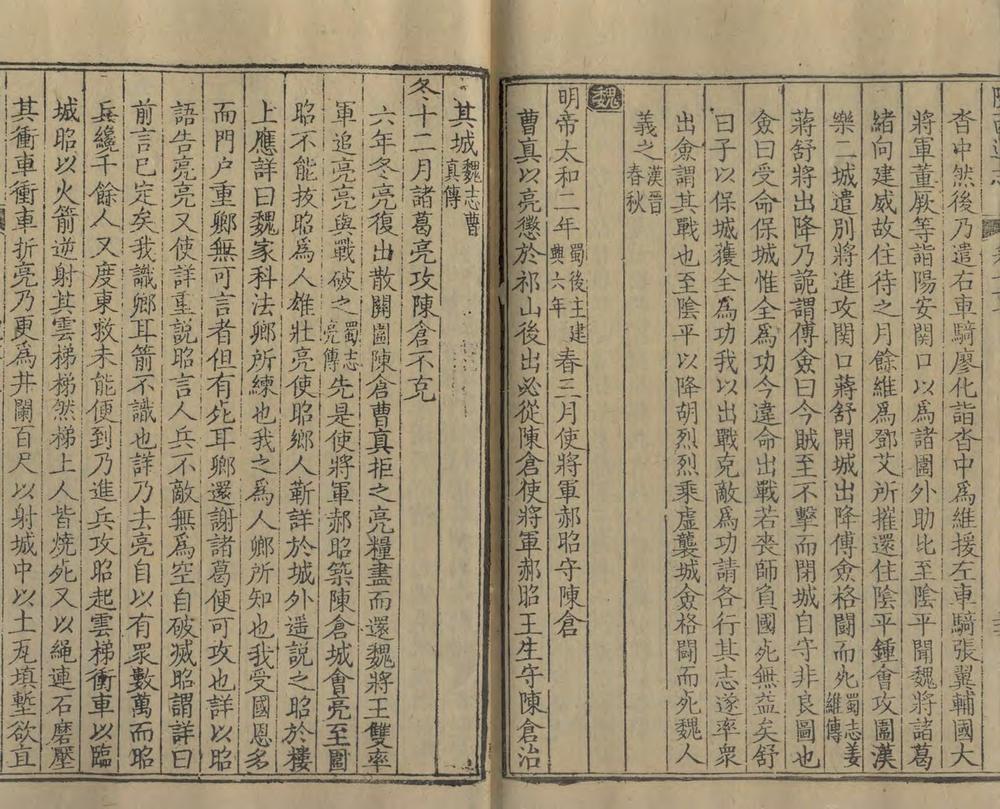 沓中然後乃遣右車騎廖化詣沓中爲維援左車騎張翼輔國大
將軍董厥等詣陽安関口以爲諸圍外助比至陰平聞魏將諸葛
緒向建威故住待之月餘維爲鄧艾所摧還住陰平鍾會攻圍漢
樂二城遣別將進攻関口蔣舒開城出降傅僉格鬪而死蜀志姜維傳
蔣舒將出降乃詭謂傅僉曰今賊至不擊而閉城自守非良圖也
僉曰受命保城惟全爲功今違命出戰若喪師負國死無益矣舒
曰子以保城獲全爲功我以出戰克敵爲功請各行其志遂率衆
出僉謂其戰也至陰平以降胡烈烈乘虛襲城僉格鬪而死魏人
義之漢晉春秋
魏
明帝太和二年蜀後主建興六年春三月使將軍郝昭守陳倉
曹真以亮懲於祁山後出必從陳倉使將軍郝昭王生守陳倉治
其城魏志曹真傳
冬十二月諸葛亮攻陳倉不克
六年冬亮復出散關圍陳倉曹真拒之亮糧盡而還魏將王雙率
軍追亮亮與戰破之蜀志亮傳先是使將軍郝昭築陳倉城會亮至圍
昭不能拔昭爲人雄壯亮使昭鄉人靳詳於城外遥說之昭於樓
上應詳曰魏家科法卿所練也我之爲人卿所知也我受國恩多
而門户重卿無可言者但有死耳卿還謝諸葛便可攻也詳以昭
語告亮亮又使詳重說昭言人兵不敵無爲空自破滅昭謂詳曰
前言已定矣我識卿耳箭不識也詳乃去亮自以有眾數萬而昭
兵纔千餘人又度東救未能便到乃進兵攻昭起雲梯衝車以臨
城昭以火箭逆射其雲梯梯然梯上人皆燒死又以繩連石磨壓
其衝車衝車折亮乃更爲井闌百尺以射城中以土瓦填塹欲直